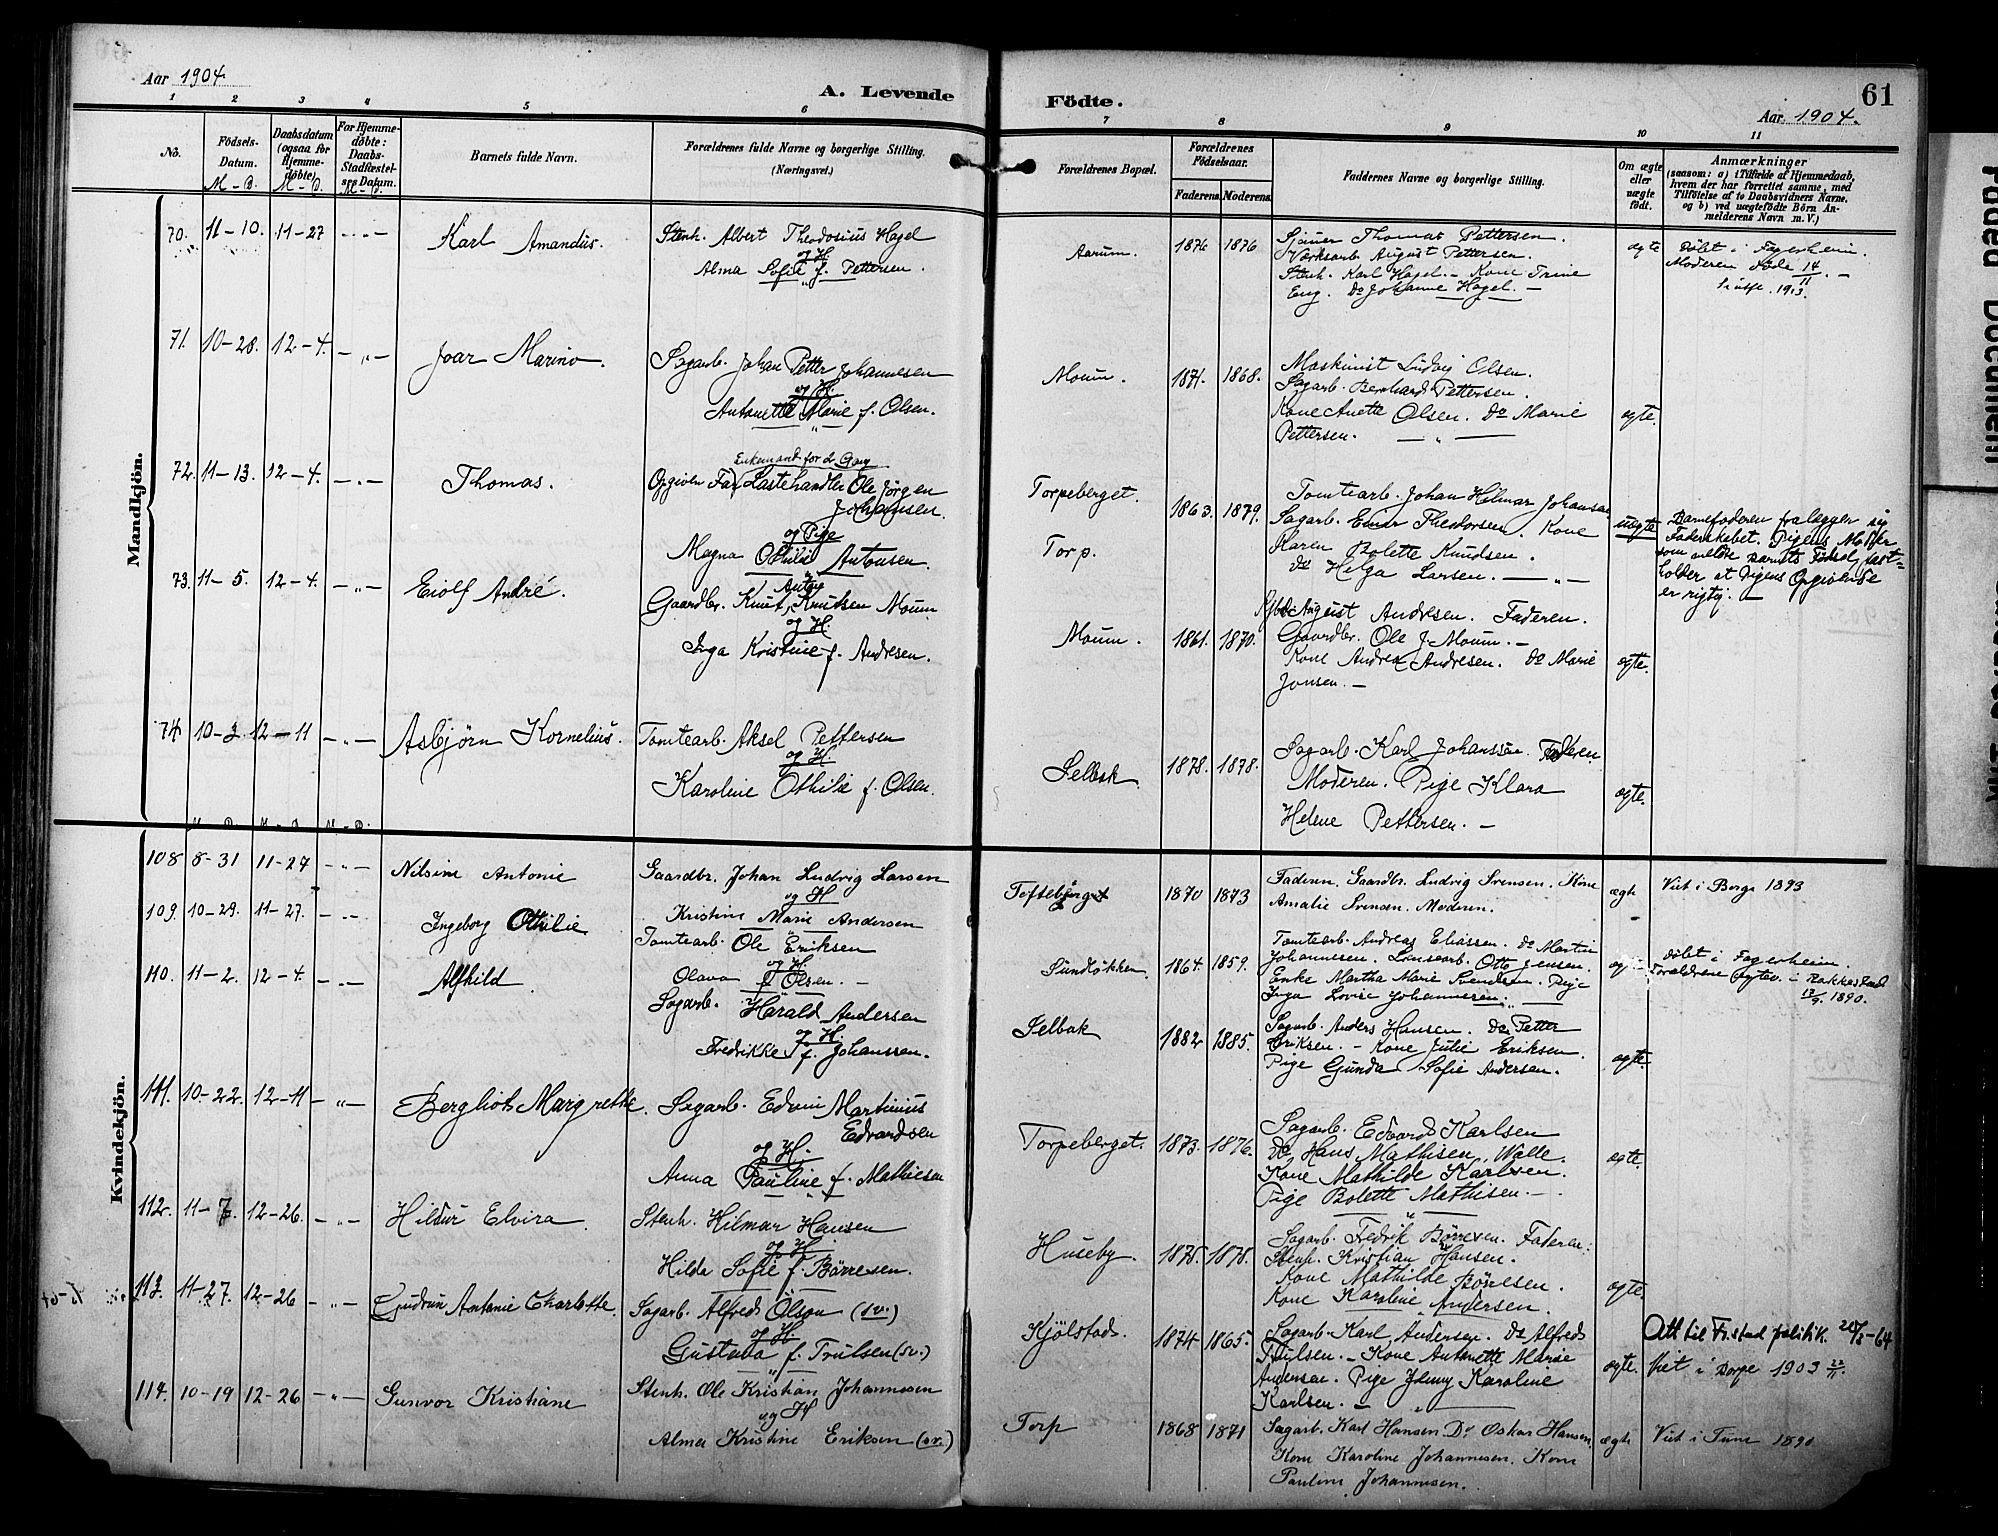 Aar 1904.
A. Levende
Födte.
61
Aar 1904.
1 2 3 4 5 6 7 8 9 10 11
No.
Födsels-Datum.
M - D.
Daabsdatum (ogsaa for Hjemme-döbte)
M - D.
For Hjemme-döbte: Daabs-Stadfæstel-ses Datum.
M - D.
Barnets fulde Navn.
Forældrenes fulde Navne og borgerlige Stilling.
(Næringsvei.)
Forældrenes Bopæl.
Forældrenes Födselsaar.
Faderens Moderens
Faddernes Navne og borgerlige Stilling.
Om ægte eller uægte födt.
Anmærkninger
(saasom: a) i Tilfælde af Hjemmedaab,
hvem der har forrettet samme, med
Tilföielse af to Daabsvidners Navne,
og b) ved uægtefödte Börn An-
melderens Navn m. V.)
Mandkjön.
70. 11-10. 11-27 Karl Amandus. Stenh. Albert Theodosius Hagel
og H.
Alma Sofie f. Pettersen.
Aarum. 1876 1876 Sjauer Thomas Pettersen.
Værksarb. August Pettersen.
Stenh. Karl Hagel. - Kone Trine
Eng. Do Johanne Hagel. -
ægte Döbt i Fagerheim.
Moderen Död 14/11
1913.
71. 10-28. 12-4. Joar Marino. Sagarb. Johan Petter Johannesen
og H.
Antonette Marie f. Olsen.
Moum. 1871. 1868. Maskinist Ludvig Olsen.
Sagarb. Bernhard Pettersen.
Kone Anette Olsen. Do Marie
Pettersen.
ægte.
72. 11-13. 12-4. Thomas.
Enkemand for d. Gang
Opgiven Far Lastehandler Ole Jörgen
Johansen.
og Pige
Magna Othilie Antonsen.
Torpeberget.
Torp.
1863. 1879. Tomtearb. Johan Hilmar Johansen
Sagarb. Einar Theodorsen. Kone
Karen Bolette Knudsen.
do Helga Larsen.
uægte Barnefaderen fralægger sig
Faderskabet. Pigens Moder
som meldte Barnets Födsel, fast-
holder at Pigens Opgivende
er rigtig.
73. 11-5. 12-4. Eiolf André.
Gaardbr. Knut Knutsen Moum.
og H.
Inga Kristine f. Andresen.
Moum. 1861. 1870. August Andresen. Faderen.
Gaardbr. Ole J. Moum. -
Kone Andrea Andresen. Do Marie
Jonsen. -
ægte.
74 10-3. 12-11 Asbjörn Kornelius. Tomtearb. Aksel Pettersen
og H.
Karoline Othilie f. Olsen.
Selbak 1878. 1878. Sagarb. Karl Johanssen. Faderen
Moderen. Pige Klara
Helene Pettersen. -
ægte.
Kvindekjön.
108 8-31 11-27 Nilsine Antonie Gaardbr. Johan Ludvig Larsen
og H
Kristine Marie Andersen
Tofteberget 1870 1873 Faderen. Gaardbr. Ludvig Svensen. Kone
Amalie Svensen. Moderen.
ægte Viet i Borge 1893
109. 10-29. 11-27. Ingeborg Othilie Tomtearb. Ole Eriksen
og H.
Olava f. Olsen.
Sundlökken. 1864. 1859. Tomtearb. Andreas Eliassen. Do Martin
Johannssen. Lensearb. Otto Jensen.
Enke Martha Marie Svendsen. Pige
Inga Lovise Johannesen.
ægte döbt i Fagerheim.
Forældrene ægtev. i Rakkestad
1890.
110. 11-2. 12-4. Alfhild Sagarb. Harald Andersen
og H.
Fredrikke f. Johanssen.
Selbak 1882 1885. Sagarb. Anders Hansen. Do Petter
Eriksen. - Kone Julie Eriksen.
Pige Gunda Sofie Andersen.
ægte.
111. 10-22. 12-11 Bergliot Margrethe. Sagarb. Edvin Martinius
Edvardsen
og H.
Anna Pauline f. Mathisen
Torpeberget. 1873. 1876. Sagarb. Edvard Karlsen
Do Hans Mathisen, Walle.
Kone Mathilde Karlsen.
Pige Bolette Mathisen.
ægte.
112. 11-7. 12-26. Hildur Elvira. Stenh. Hilmar Hansen
og H
Hilda Sofie f. Börresen.
Huseby. 1875. 1878. Sagarb. Fredrik Börresen. Faderen:
Stenh. Kristian Hansen.
Kone Mathilde Börresen.
Kone Karoline Andersen.
ægte.
113. 11-27. 12-26 Gudrun Antonie Charlotte. Sagarb. Alfred Olson (sv.)
og H
Gustava f. Trulsen (sv.)
Kjölstad. 1874 1865. Sagarb. Karl Andersen. Do Alfred
Kone Antonette Marie
Andersen. Pige Jenny Karoline
Karlsen. -
ægte. Att til Fr.stad politik. -64
Viet i Borge 1903 22/11.
114. 10-19 12-26 Gunvor Kristiane Stenh. Ole Kristian Johannesen
og H
Alma Kristine Eriksen (sv.)
Torp 1868 1871 Sagarb. Karl Hansen Do Oskar Hansen.
Kone Karoline Johannesen. Kone
Pauline Johannesen.
ægte Viet i Tune 1890